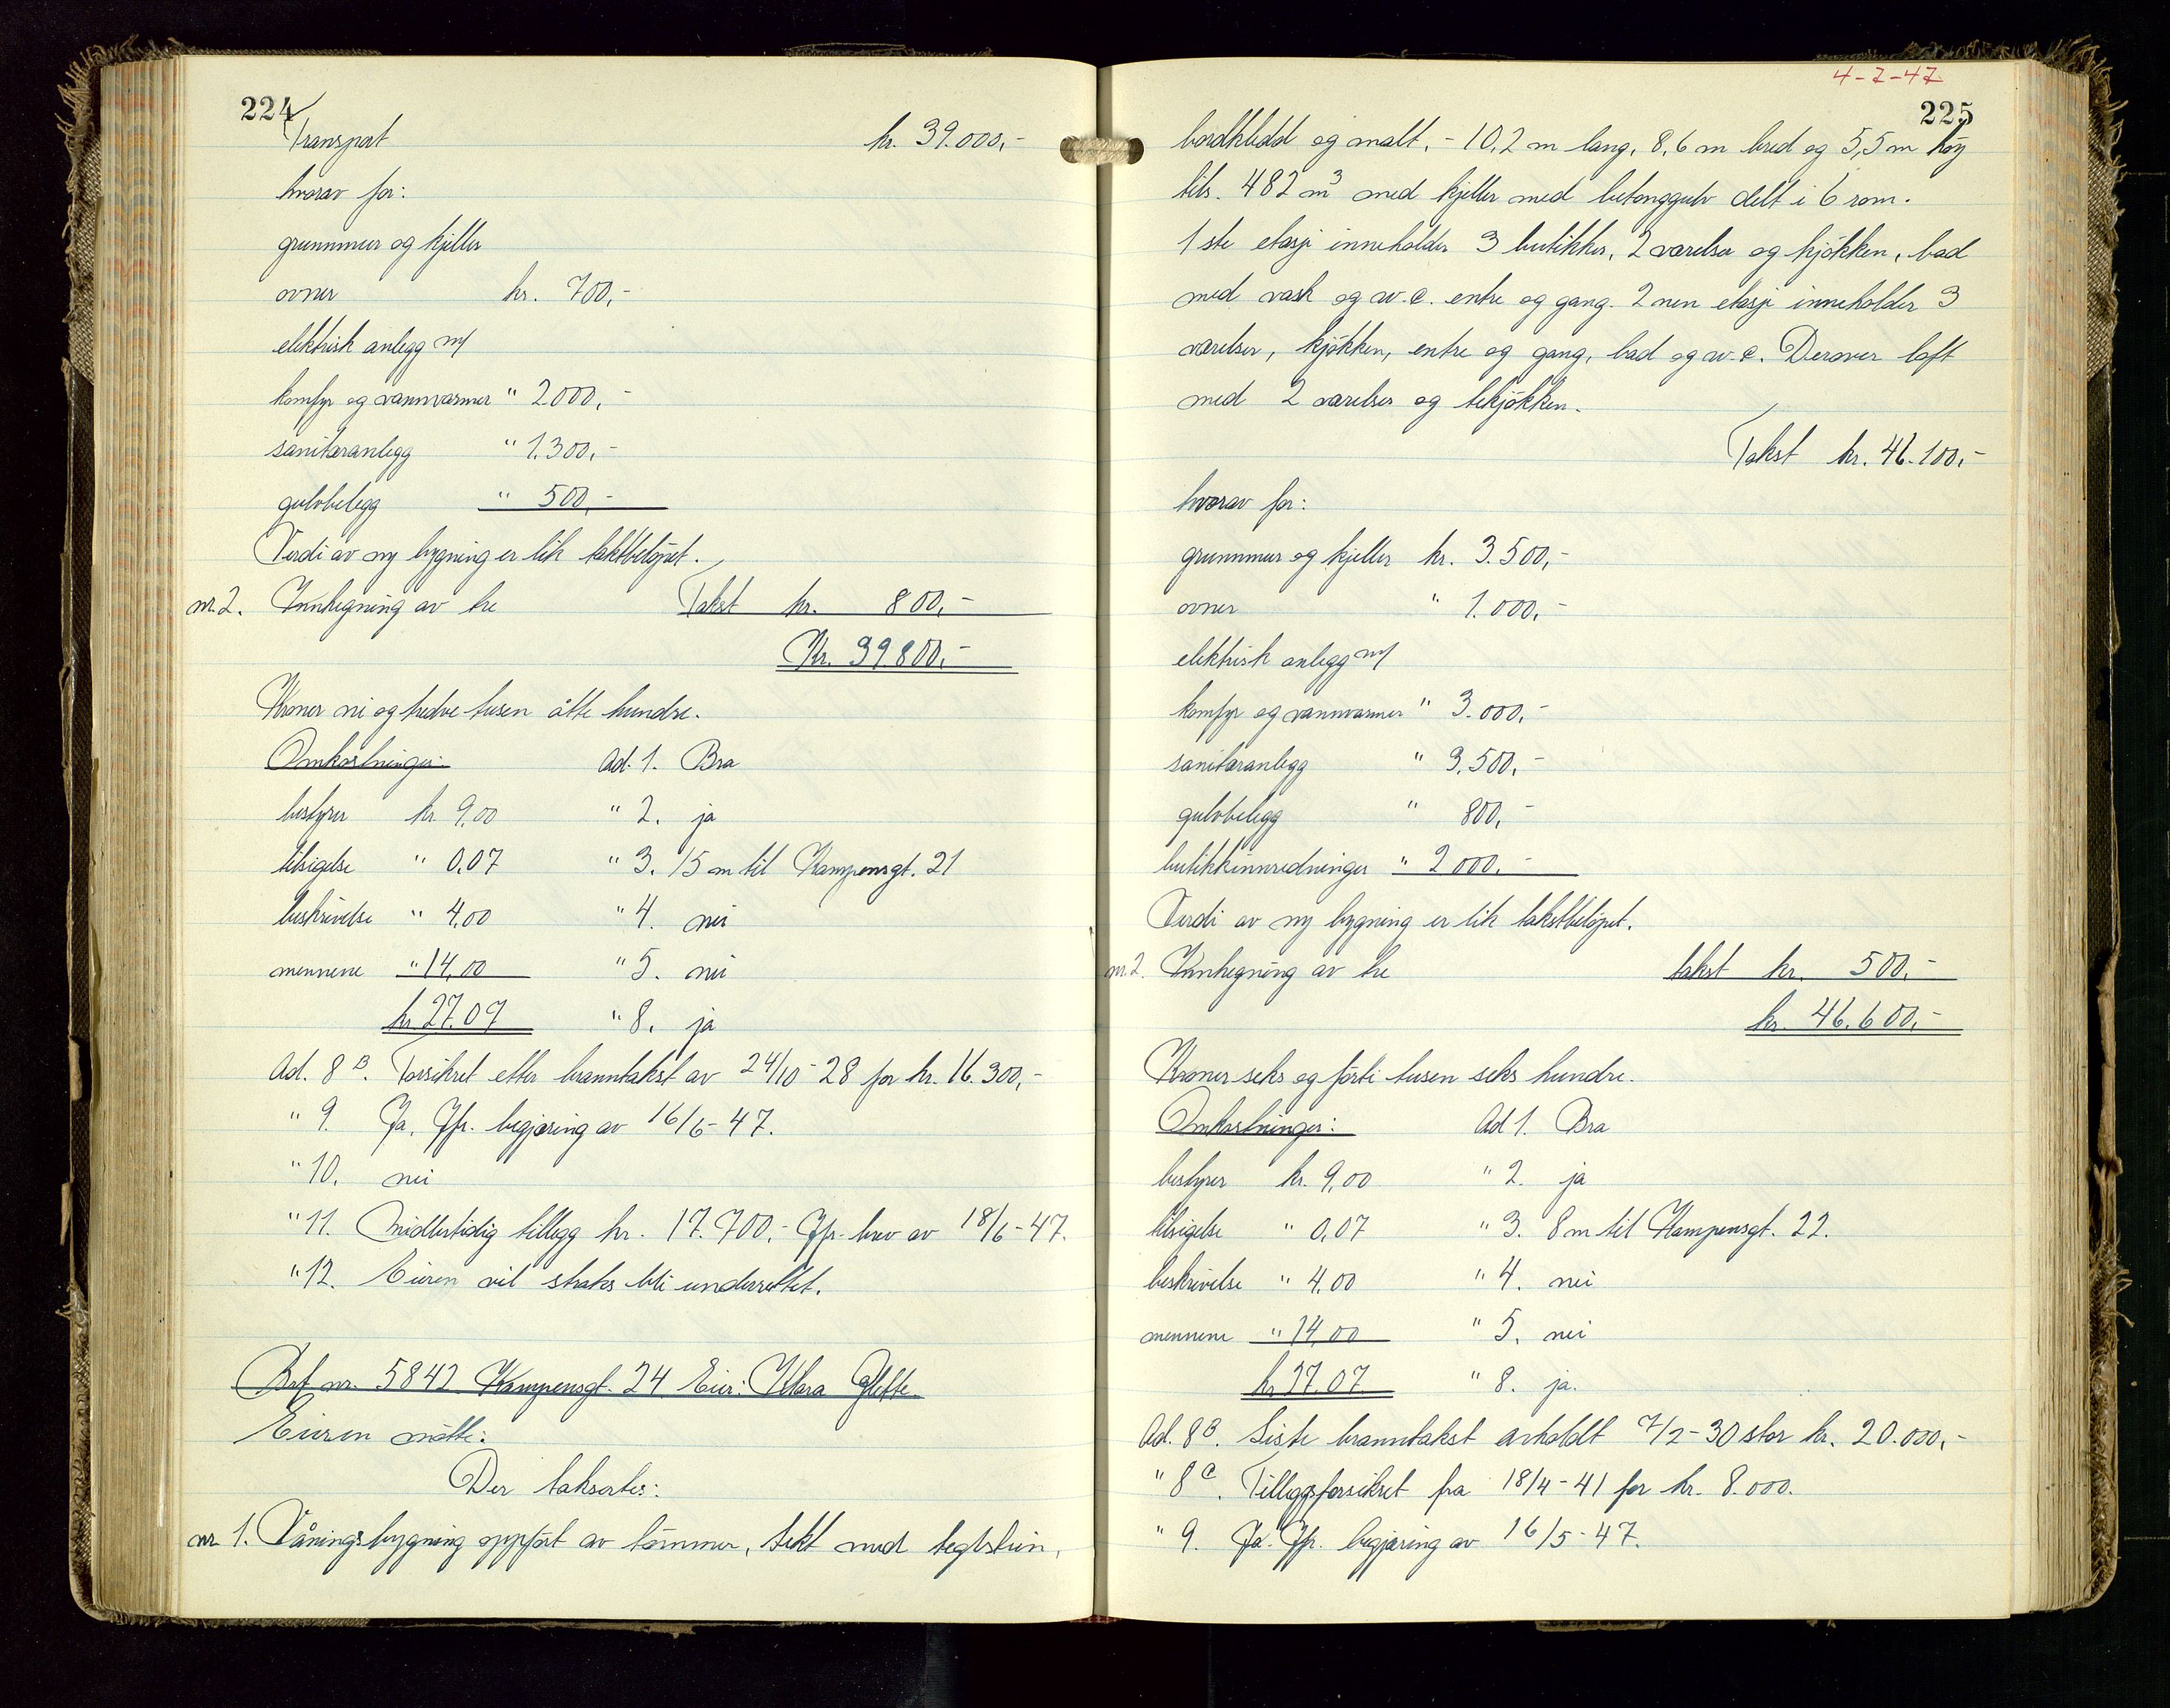 224
Transport kr. 39.000,-
hvorav for:
grunnmur og kjeller
ovner kr. 700,-
elektrisk anlegg m/
komfyr og vannvarmer " 2.000,-
sanitæranlegg " 1.300,-
gulvbelegg " 500,-
Verdi av ny bygning er lik takstbeløpet.
nr. 2. Innhegning av tre Takst kr. 800,-
Kr. 39.800,-
Kroner ni og tredve tusen åtte hundre.
Omkostninger: Ad. 1. Bra
bestyrer kr 9,00 " 2. ja
tilsigelse " 0,07 " 3. 15 m til Kampensgt. 21
beskrivelse " 4,00 " 4. nei
mennene " 14,00 " 5. nei
kr 27.07 " 8. ja
Ad. 8 B. Forsikret etter branntakst av 24/10-28 for kr. 16.300,-
" 9. Ja. Jfr. begjæring av 16/6-47.
" 10. nei
" 11. Midlertidig tillegg kr. 17.700,- Jfr. brev av 18/6-47.
" 12. Eieren vil straks bli underrettet.
Brf nr. 5842 Kampensgt. 24 Eier: Klara Glette
Eieren møtte:
Der taksertes:
nr 1. Våningsbygning oppført av tømmer, tekt med teglstein,
4-7-47
225
bordkledd og malt, - 10,2 m lang, 8,6 m bred og 5,5 m høy
tils. 482 m3 med kjeller med betonggulv delt i 6 rom.
1 ste etasje inneholder 3 butikker, 2 værelser og kjøkken, bad
med vask og w.c. entre og gang. 2 nen etasje inneholder 3
værelser, kjøkken, entre og gang, bad og w.c. Derover loft
med 2 værelser og tekjøkken.
Takst kr. 46.100,-
hvorav for:
grunnmur og kjeller kr. 3.500,-
ovner " 1.000,-
elektrisk anlegg m/
komfyr og vannvarmer " 3.000,-
sanitæranlegg " 3.500,-
gulvbelegg " 800,-
butikkinnredninger " 2.000,-
Verdi av ny bygning er lik takstbeløpet.
nr. 2. Innhegning av tre takst kr. 500,-
kr. 46.600,-
Kroner seks og førti tusen seks hundre.
Omkostninger: Ad 1. Bra
bestyrer kr. 9,00 " 2. ja
tilsigelse " 0,07 " 3. 8 m til Kampensgt. 22.
beskrivelse " 4,00 " 4. nei
mennene " 14,00 " 5. nei
kr 27.07 " 8. ja.
Ad. 8 B. Siste branntakst avholdt 7/2-30 stor kr. 20.000,-
" 8 C. Tilleggsforsikret fra 18/4-41 for kr. 8.000.
" 9. Ja. Jfr. begjæring av 16/5-47.